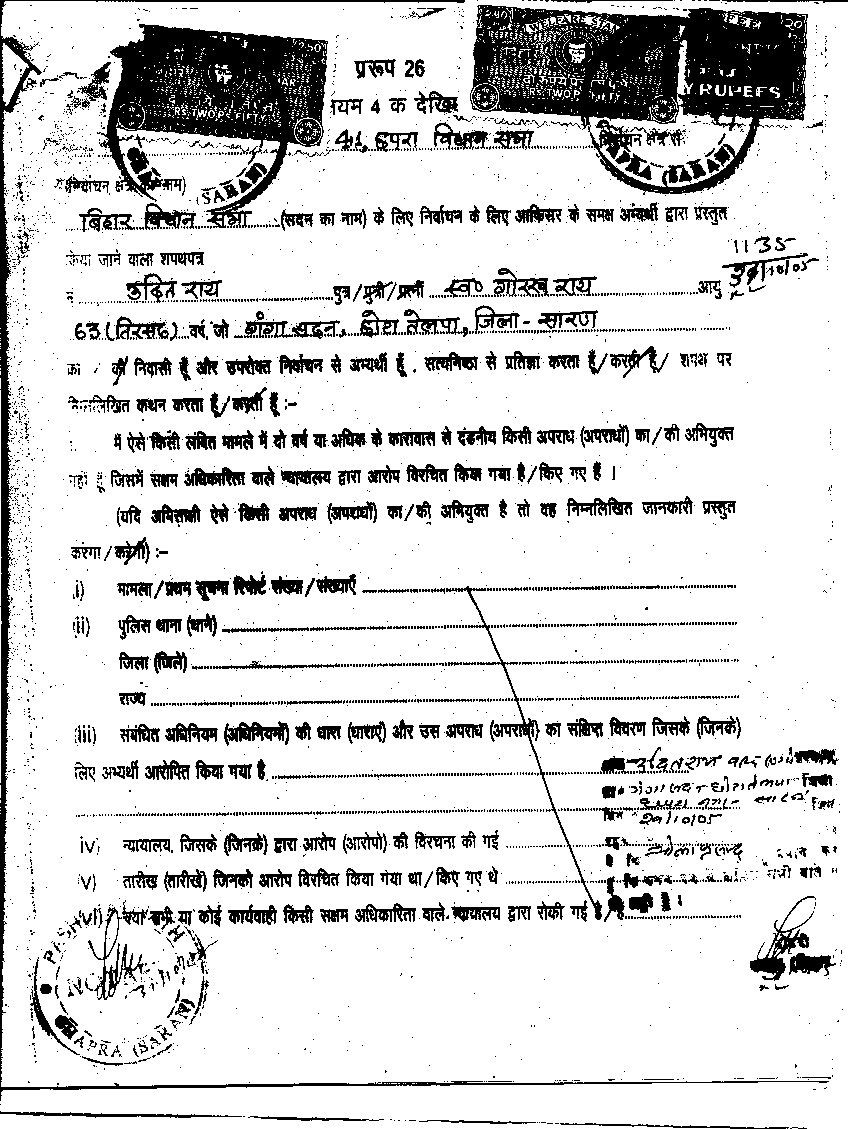 250
WELFARE STA
20
RUPEES
प्ररूप 26
यम 4 क देखि
41, छपरा विधान सभा निर्वाचन क्षेत्र से
(SARAN)
CHAPRA (SARAN)
बिहार विधान सभा (सदन का नाम) के लिए निर्वाचन के लिए आफिसर के समक्ष अभ्यर्थी द्वारा प्रस्तुत
किया जाने वाला शपथपत्र
1135
29/10/05
मैं उदित राय पुत्र/पुत्री/पत्नी स्व० गोरख राय आयु
63 (तिरसठ) वर्ष, जो गंगा सदन, छोटा तेलपा, जिला - सारण
का / की निवासी हूँ और उपरोक्त निर्वाचन से अभ्यर्थी हूँ, सत्यनिष्ठा से प्रतिज्ञा करता हूँ/करती हूँ/ शपथ पर
निम्नलिखित कथन करता हूँ/करती हूँ :-
मैं ऐसे किसी लंबित मामले में दो वर्ष या अधिक के कारावास से दंडनीय किसी अपराध (अपराधों) का/की अभियुक्त
नहीं हूँ जिसमें सक्षम अधिकारिता वाले न्यायालय द्वारा आरोप विरचित किया गया है/किए गए हैं ।
(यदि अभिसाक्षी ऐसे किसी अपराध (अपराधों) का/की अभियुक्त है तो वह निम्नलिखित जानकारी प्रस्तुत
करेगा/करेगी) :-
i) मामला/प्रथम सूचना रिपोर्ट संख्या/संख्याएँ
(ii) पुलिस थाना (थाने)
जिला (जिले)
राज्य
(iii) संबंधित अधिनियम (अधिनियमों) की धारा (धाराएँ) और उस अपराध (अपराधों) का संक्षिप्त विवरण जिसके (जिनके)
लिए अभ्यर्थी आरोपित किया गया है
उदित राय
29/10/05
iv) न्यायालय, जिसके (जिनके) द्वारा आरोप (आरोपों) की विरचना की गई
v) तारीख (तारीखें) जिनको आरोप विरचित किया गया था/किए गए थे
vi) क्या सभी या कोई कार्यवाही किसी सक्षम अधिकारिता वाले न्यायालय द्वारा रोकी गई है/हैं
CHAPRA (SARAN)